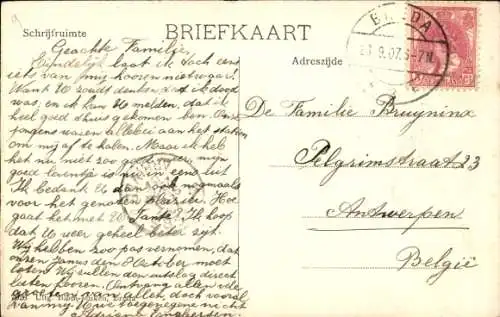 BRIEFKAART
Schrijfruimte
Adreszijde
BREDA
9.07.
Geachte Familie,
Eindelijk laat ik toch eens
iets van mij hooren niet waar?
Want U zoudt denken dat ik dood
was, en ik kan U melden, dat ik
heel goed thuis gekomen ben. Onze
jongens waren allebei aan het station
om mij af te halen. Maar ik heb
het nu niet zoo goed meer, mijn
goed leventje is nu in eens uit
Ik bedank U dan ook nogmaals
voor het genoten plezier. Hoe
gaat het met U Tante? Ik hoop
dat U weer geheel beter zijt.
Wij hebben zoo pas vernomen, dat
onzen Janus den 8 October moet
loten. Wij zullen dan uitslag direct
laten hooren. Ontvang allen vele
groeten van allen, doch vooral
van mij Uwe toegenegene nicht
Adriana
De Familie Bruynina
Pelgrimstraat 23
Antwerpen
België